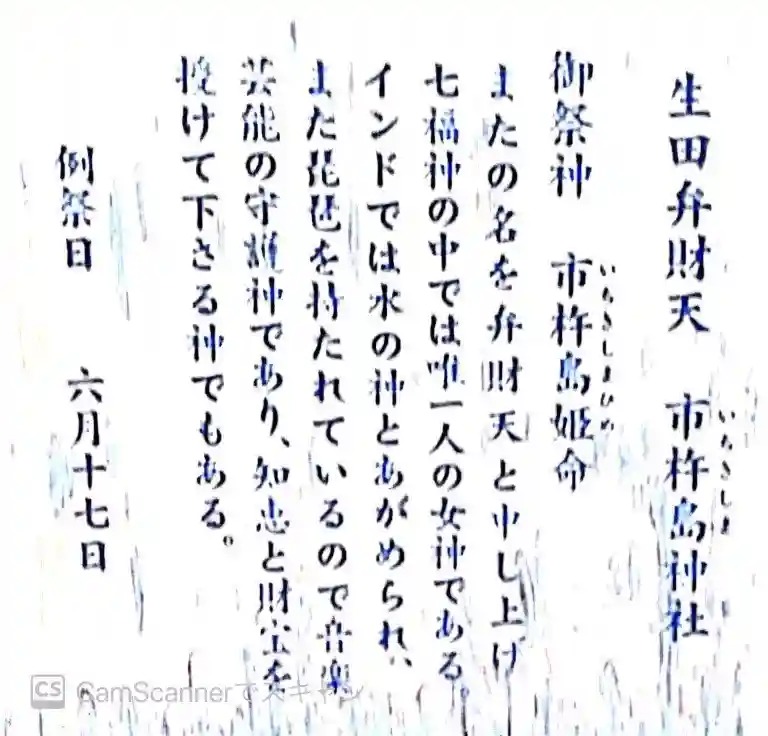 生田弁財天　市杵島神社
いちきしま
御祭神　市杵島姫命
いちきしまひめ
またの名を弁財天と申し上げ
七福神の中では唯一人の女神である。
インドでは水の神とあがめられ、
また琵琶を持たれているので音楽
芸能の守護神であり、知恵と財宝を
授けて下さる神でもある。
例祭日　六月十七日
CS CamScannerでスキャン